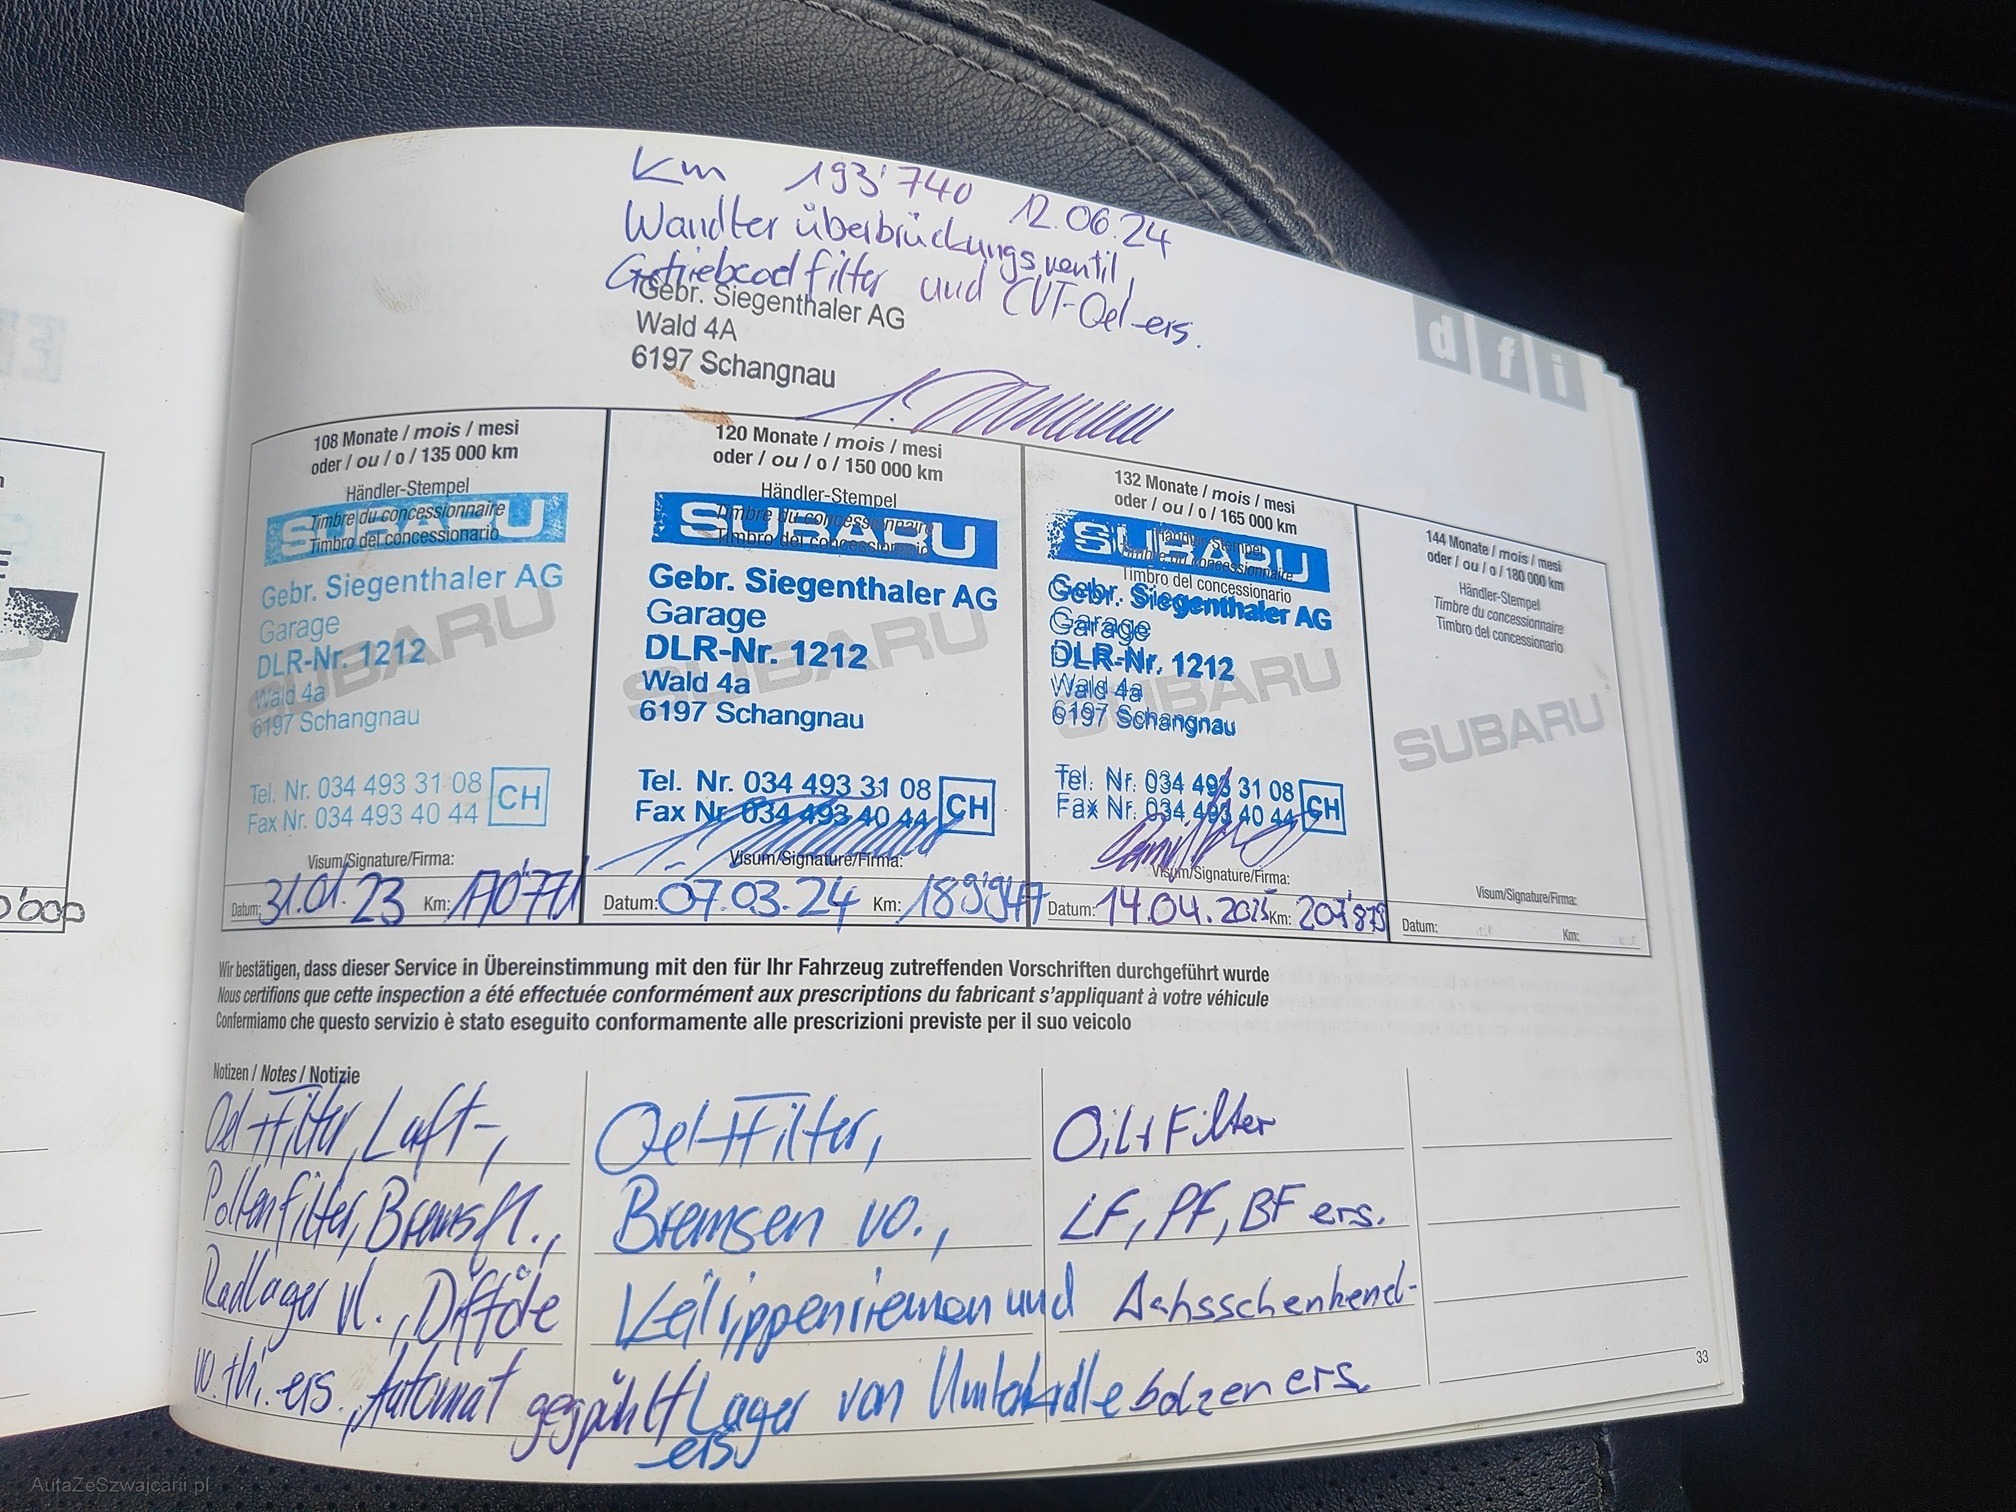 Km 193'740 12.06.24
Wandler überbrückungsventil,
Getriebeoelfilter und CVT-Oel ers.
Gebr. Siegenthaler AG
Wald 4A
6197 Schangnau
d f i
108 Monate / mois / mesi
oder / ou / o / 135 000 km
Händler-Stempel
Timbre du concessionnaire
Timbro del concessionario
SUBARU
Gebr. Siegenthaler AG
Garage
DLR-Nr. 1212
Wald 4a
6197 Schangnau
SUBARU
Tel. Nr. 034 493 31 08
Fax Nr. 034 493 40 44
CH
Visum/Signature/Firma:
Datum: 31.01.23 Km: 170'771
120 Monate / mois / mesi
oder / ou / o / 150 000 km
Händler-Stempel
Timbre du concessionnaire
Timbro del concessionario
SUBARU
Gebr. Siegenthaler AG
Garage
DLR-Nr. 1212
Wald 4a
6197 Schangnau
SUBARU
Tel. Nr. 034 493 31 08
Fax Nr. 034 493 40 44
CH
Visum/Signature/Firma:
Datum: 07.03.24 Km: 189'947
132 Monate / mois / mesi
oder / ou / o / 165 000 km
Händler-Stempel
Timbre du concessionnaire
Timbro del concessionario
SUBARU
Gebr. Siegenthaler AG
Garage
DLR-Nr. 1212
Wald 4a
6197 Schangnau
SUBARU
Tel. Nr. 034 493 31 08
Fax Nr. 034 493 40 44
CH
Visum/Signature/Firma:
Datum: 14.04.2025 Km:
144 Monate / mois / mesi
oder / ou / o / 180 000 km
Händler-Stempel
Timbre du concessionnaire
Timbro del concessionario
SUBARU
Visum/Signature/Firma:
Datum: Km:
0'000
Wir bestätigen, dass dieser Service in Übereinstimmung mit den für Ihr Fahrzeug zutreffenden Vorschriften durchgeführt wurde
Nous certifions que cette inspection a été effectuée conformément aux prescriptions du fabricant s'appliquant à votre véhicule
Confermiamo che questo servizio è stato eseguito conformamente alle prescrizioni previste per il suo veicolo
Notizen / Notes / Notizie
Oel+Filter, Luft-,
Pollenfilter, Bremsfl.,
Radlager vl., Difföle
vo. + hi. ers., Automat gespühlt
Oel+Filter,
Bremsen vo.,
Keilrippenriemen und
Lager von Umlenkrolle
ers.
Oil+Filter
LF, PF, BF ers.
Achsschenkel-
bolzen ers.
33
AutaZeSzwajcarii.pl